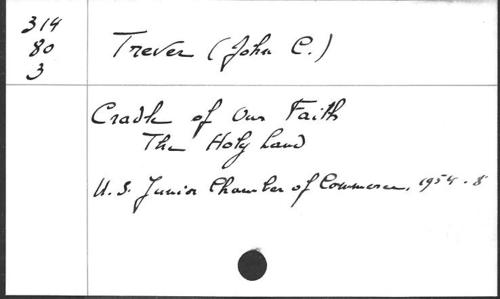 314
80
3
Trever (John C.)
Cradle of Our Faith
The Holy Land
U.S. Junior Chamber of Commerce, 1954. 8°